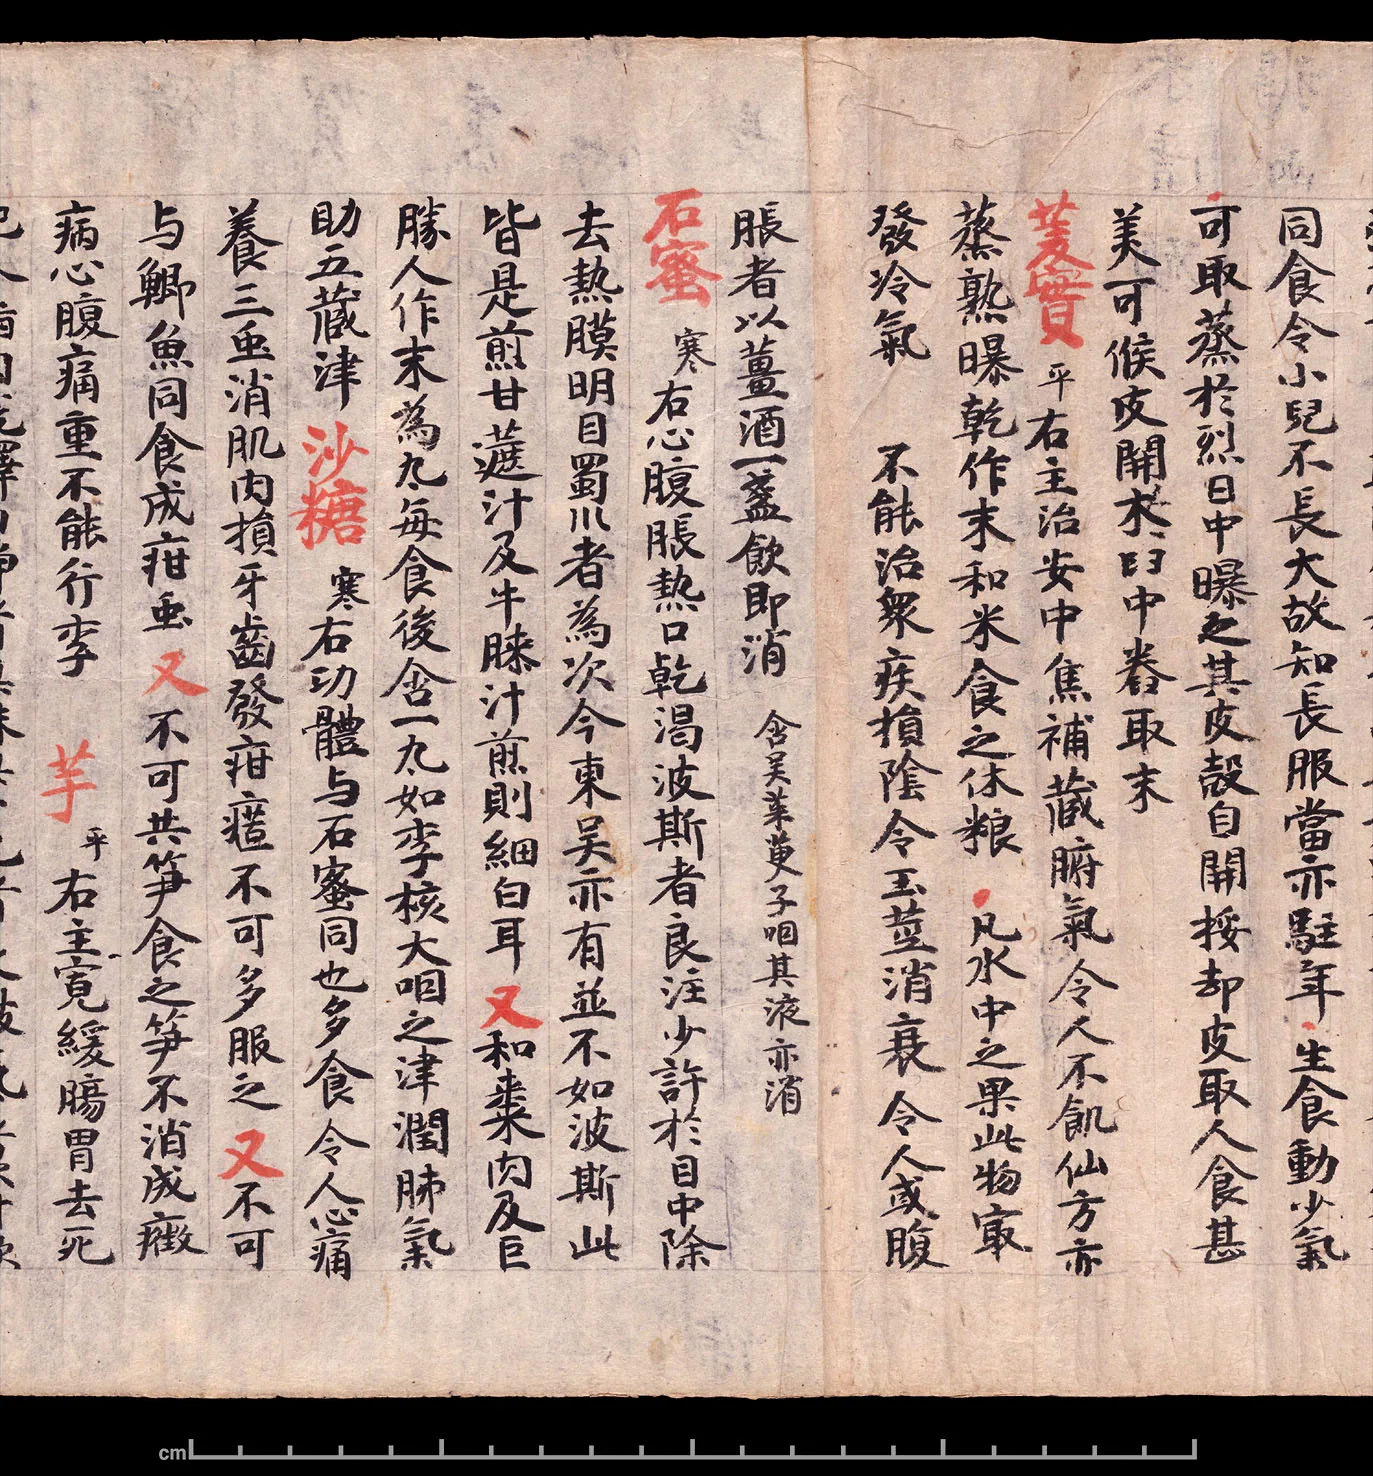 同食令小兒不長大故知長服當亦駐年生食動少氣
可取蒸於烈日中曝之其皮殼自開挼却皮取人食甚
美可候皮開木臼中舂取末
芰實平右主治安中焦補藏腑氣令人不飢仙方亦
蒸熟曝乾作末和米食之休粮凡水中之果此物寂
發冷氣不能治衆疾損陰令玉莖消衰令人或腹
脹者以薑酒一盞飲即消含吴茱萸子咽其液亦消
石蜜寒右心腹脹熱口乾渴波斯者良注少許於目中除
去熱膜明目蜀川者為次今東吴亦有並不如波斯此
皆是煎甘蔗汁及牛膝汁煎則細白耳又和棗肉及巨
勝人作末為丸每食後含一丸如李核大咽之津潤肺氣
助五藏津沙糖寒右功體与石蜜同也多食令人心痛
養三虫消肌肉損牙齒發疳䘌不可多服之又不可
与鯽魚同食成疳虫又不可共笋食之笋不消成癥
病心腹痛重不能行李芋平右主寬緩腸胃去死